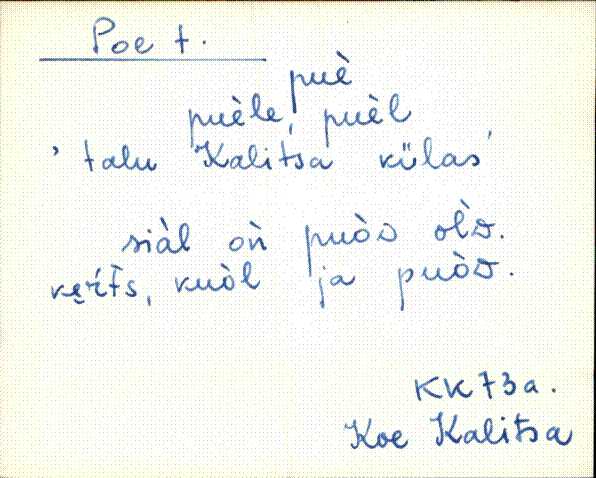 Poe t.
puè
puèle, puèl
'talu Kalitsa külas'
siàl oǹ puòᴅ olᴅ̀.
kuòl ja puòᴅ.
KK73a.
Koe Kalitsa